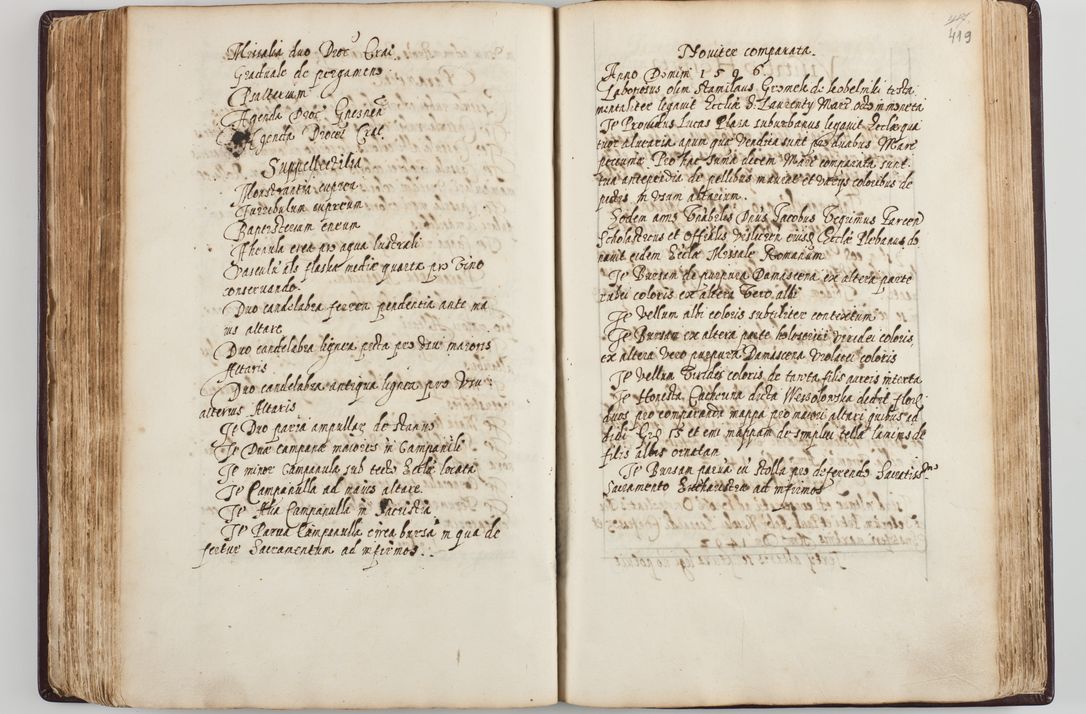 Missalia duo Dioc Crac
Graduale de pergameno
Psalterium
Agenda Dioc Gnesnen
Agenda Dioces Crac
Suppellectilia
Monstrantia cuprea
Turribulum cupreum
Baptisterium eneum
Ahenula erea pro aqua lustrali
Vasculū als flasha mediæ quartæ pro vino
conservando.
Duo candelabra ferrea pendentia ante ma
ius altare
Duo candelabra lignea picta pro usu maioris
Altaris
Duo candelabra antiqua lignea pro usu
alterius Altaris
Ite Duo paria ampullaru de stanno
Ite Duæ campanæ maiores in Campanili
Ite minor Campanula sub tecto Eccliæ locata
Ite Campanulla ad maius altare.
Ite Alia Campanulla in Sacristia
Ite Parua Campanulla circa bursā in qua de
fertur Sacramentum ad infirmos.
419
Noviter comparata.
Anno Domini 1596.
Laboriosus olim Stanislaus Gromek de Kobelniki testa
mentaliter legauit Eccliæ S. Laurenty Marc octo in moneta
Ite Prouidus Lucas Plaza suburbanus legauit Eccliæ qua
tuor aluearia apum quæ vendita sunt pro duabus Marc
pecuniæ Pro hac suma decem Marc comparata sunt
tria antependia de pellibus mauricæ et varys coloribus de
pictis in vsum altarium.
Eodem anno Vnabilis Dnus Jacobus
Scholasticus et Offialis Vislicien eiusq Eccliæ Plebanus do
nauit eidem Eccliæ Missale Romanum
Ite Bursam de purpura Damascena ex altera parte
rubei coloris ex altera vero albi
Ite vellum albi coloris subtiliter contextum
Ite Bursam ex altera parte holosericei viridei coloris,
ex altera vero purpura Damascena violacei coloris
Ite vellum viridei coloris de filis aureis intexta
Ite Honesta dicta Wessolowska dedit flore
duos pro comparanda mappa pro maiori altari quibus ad
didi Gro 15 et emi mappam de simplici tella lanimis de
filis albis ornatam
Ite Bursam parua cū stolla pro deferendo Sacratiss mo
Sacramento Eucharistiæ ad infirmos